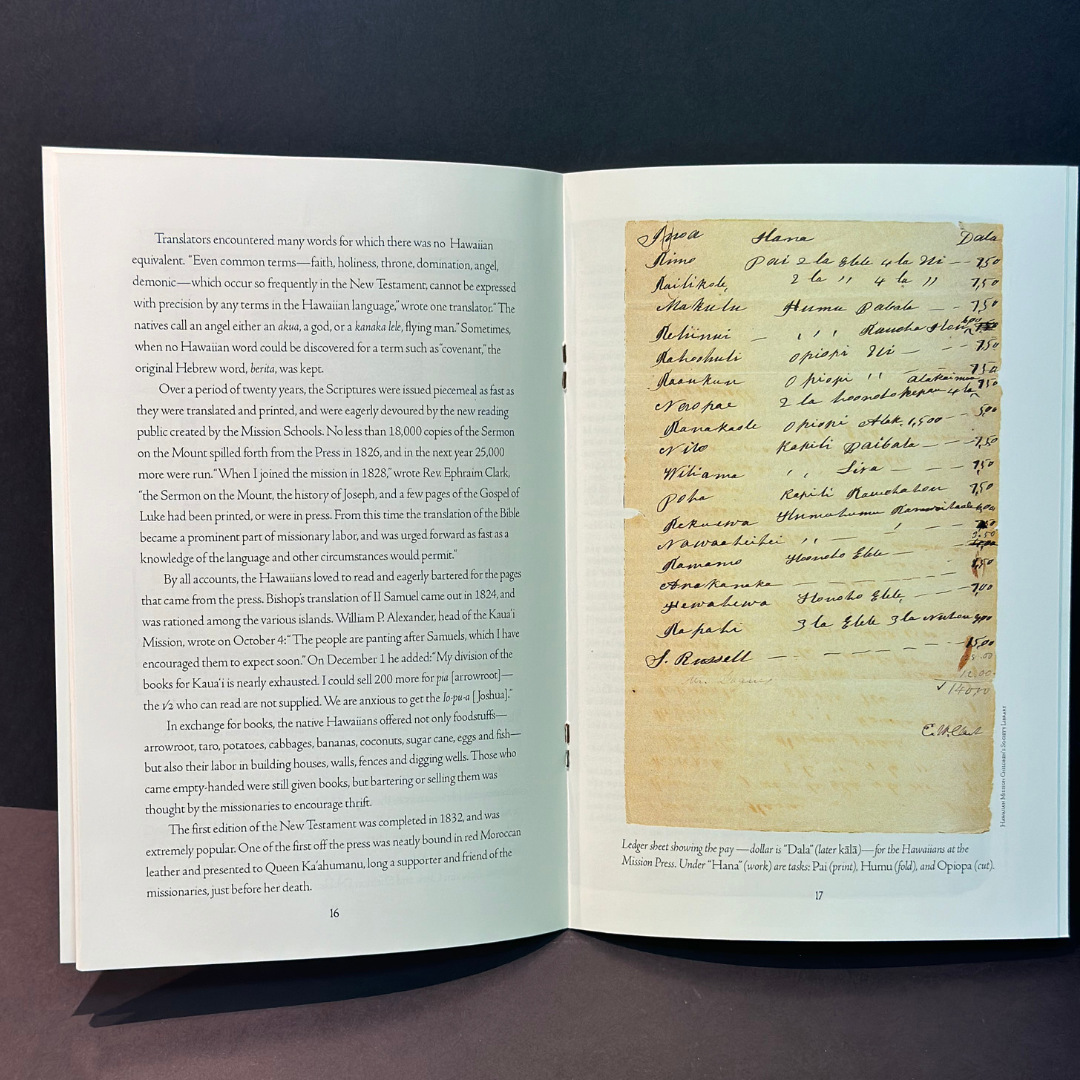 Translators encountered many words for which there was no Hawaiian
equivalent. “Even common terms—faith, holiness, throne, domination, angel,
demonic—which occur so frequently in the New Testament, cannot be expressed
with precision by any terms in the Hawaiian language,” wrote one translator. “The
natives call an angel either an akua, a god, or a kanaka lele, flying man.” Sometimes,
when no Hawaiian word could be discovered for a term such as “covenant,” the
original Hebrew word, berita, was kept.
Over a period of twenty years, the Scriptures were issued piecemeal as fast as
they were translated and printed, and were eagerly devoured by the new reading
public created by the Mission Schools. No less than 18,000 copies of the Sermon
on the Mount spilled forth from the Press in 1826, and in the next year 25,000
more were run. “When I joined the mission in 1828,” wrote Rev. Ephraim Clark,
“the Sermon on the Mount, the history of Joseph, and a few pages of the Gospel of
Luke had been printed, or were in press. From this time the translation of the Bible
became a prominent part of missionary labor, and was urged forward as fast as a
knowledge of the language and other circumstances would permit.”
By all accounts, the Hawaiians loved to read and eagerly bartered for the pages
that came from the press. Bishop’s translation of II Samuel came out in 1824, and
was rationed among the various islands. William P. Alexander, head of the Kaua‘i
Mission, wrote on October 4: “The people are panting after Samuels, which I have
encouraged them to expect soon.” On December 1 he added: “My division of the
books for Kaua‘i is nearly exhausted. I could sell 200 more for pia [arrowroot]—
the 1/2 who can read are not supplied. We are anxious to get the Io-pu-a [Joshua].”
In exchange for books, the native Hawaiians offered not only foodstuffs—
arrowroot, taro, potatoes, cabbages, bananas, coconuts, sugar cane, eggs and fish—
but also their labor in building houses, walls, fences and digging wells. Those who
came empty-handed were still given books, but bartering or selling them was
thought by the missionaries to encourage thrift.
The first edition of the New Testament was completed in 1832, and was
extremely popular. One of the first off the press was neatly bound in red Moroccan
leather and presented to Queen Ka‘ahumanu, long a supporter and friend of the
missionaries, just before her death.
16
Inoa Hana Dala
Kimo Pai 2 la Elele 4 la Ili — 7,50
Kailikole, 2 la " 4 la " 7,50
Makulu Humu Pabale — 7,50
— ' ' Kauoha
Opiopi Ili — — 7,50
Opiopi ' '
2 la
Kanakaole Opiopi 1,500 — 5,00
Nilo Kapili Paibala — — 7,50
Wiliama ' ' — — 7,50
Poha Kapili Kauohahou 7,50
Kekuewa Humuhumu
Kamamo Honoho Elele — — —
Anakanaka — — —
Hewahewa Honoho Elele, — — 7,00
Kapahi 3 la Elele 3 la
S. Russell — — — — — 15,00
12.00
✓ 140.00
E. W. Clark
Hawaiian Mission Children’s Society Library
Ledger sheet showing the pay — dollar is “Dala” (later kālā) — for the Hawaiians at the
Mission Press. Under “Hana” (work) are tasks: Pai (print), Humu (fold), and Opiopa (cut).
17